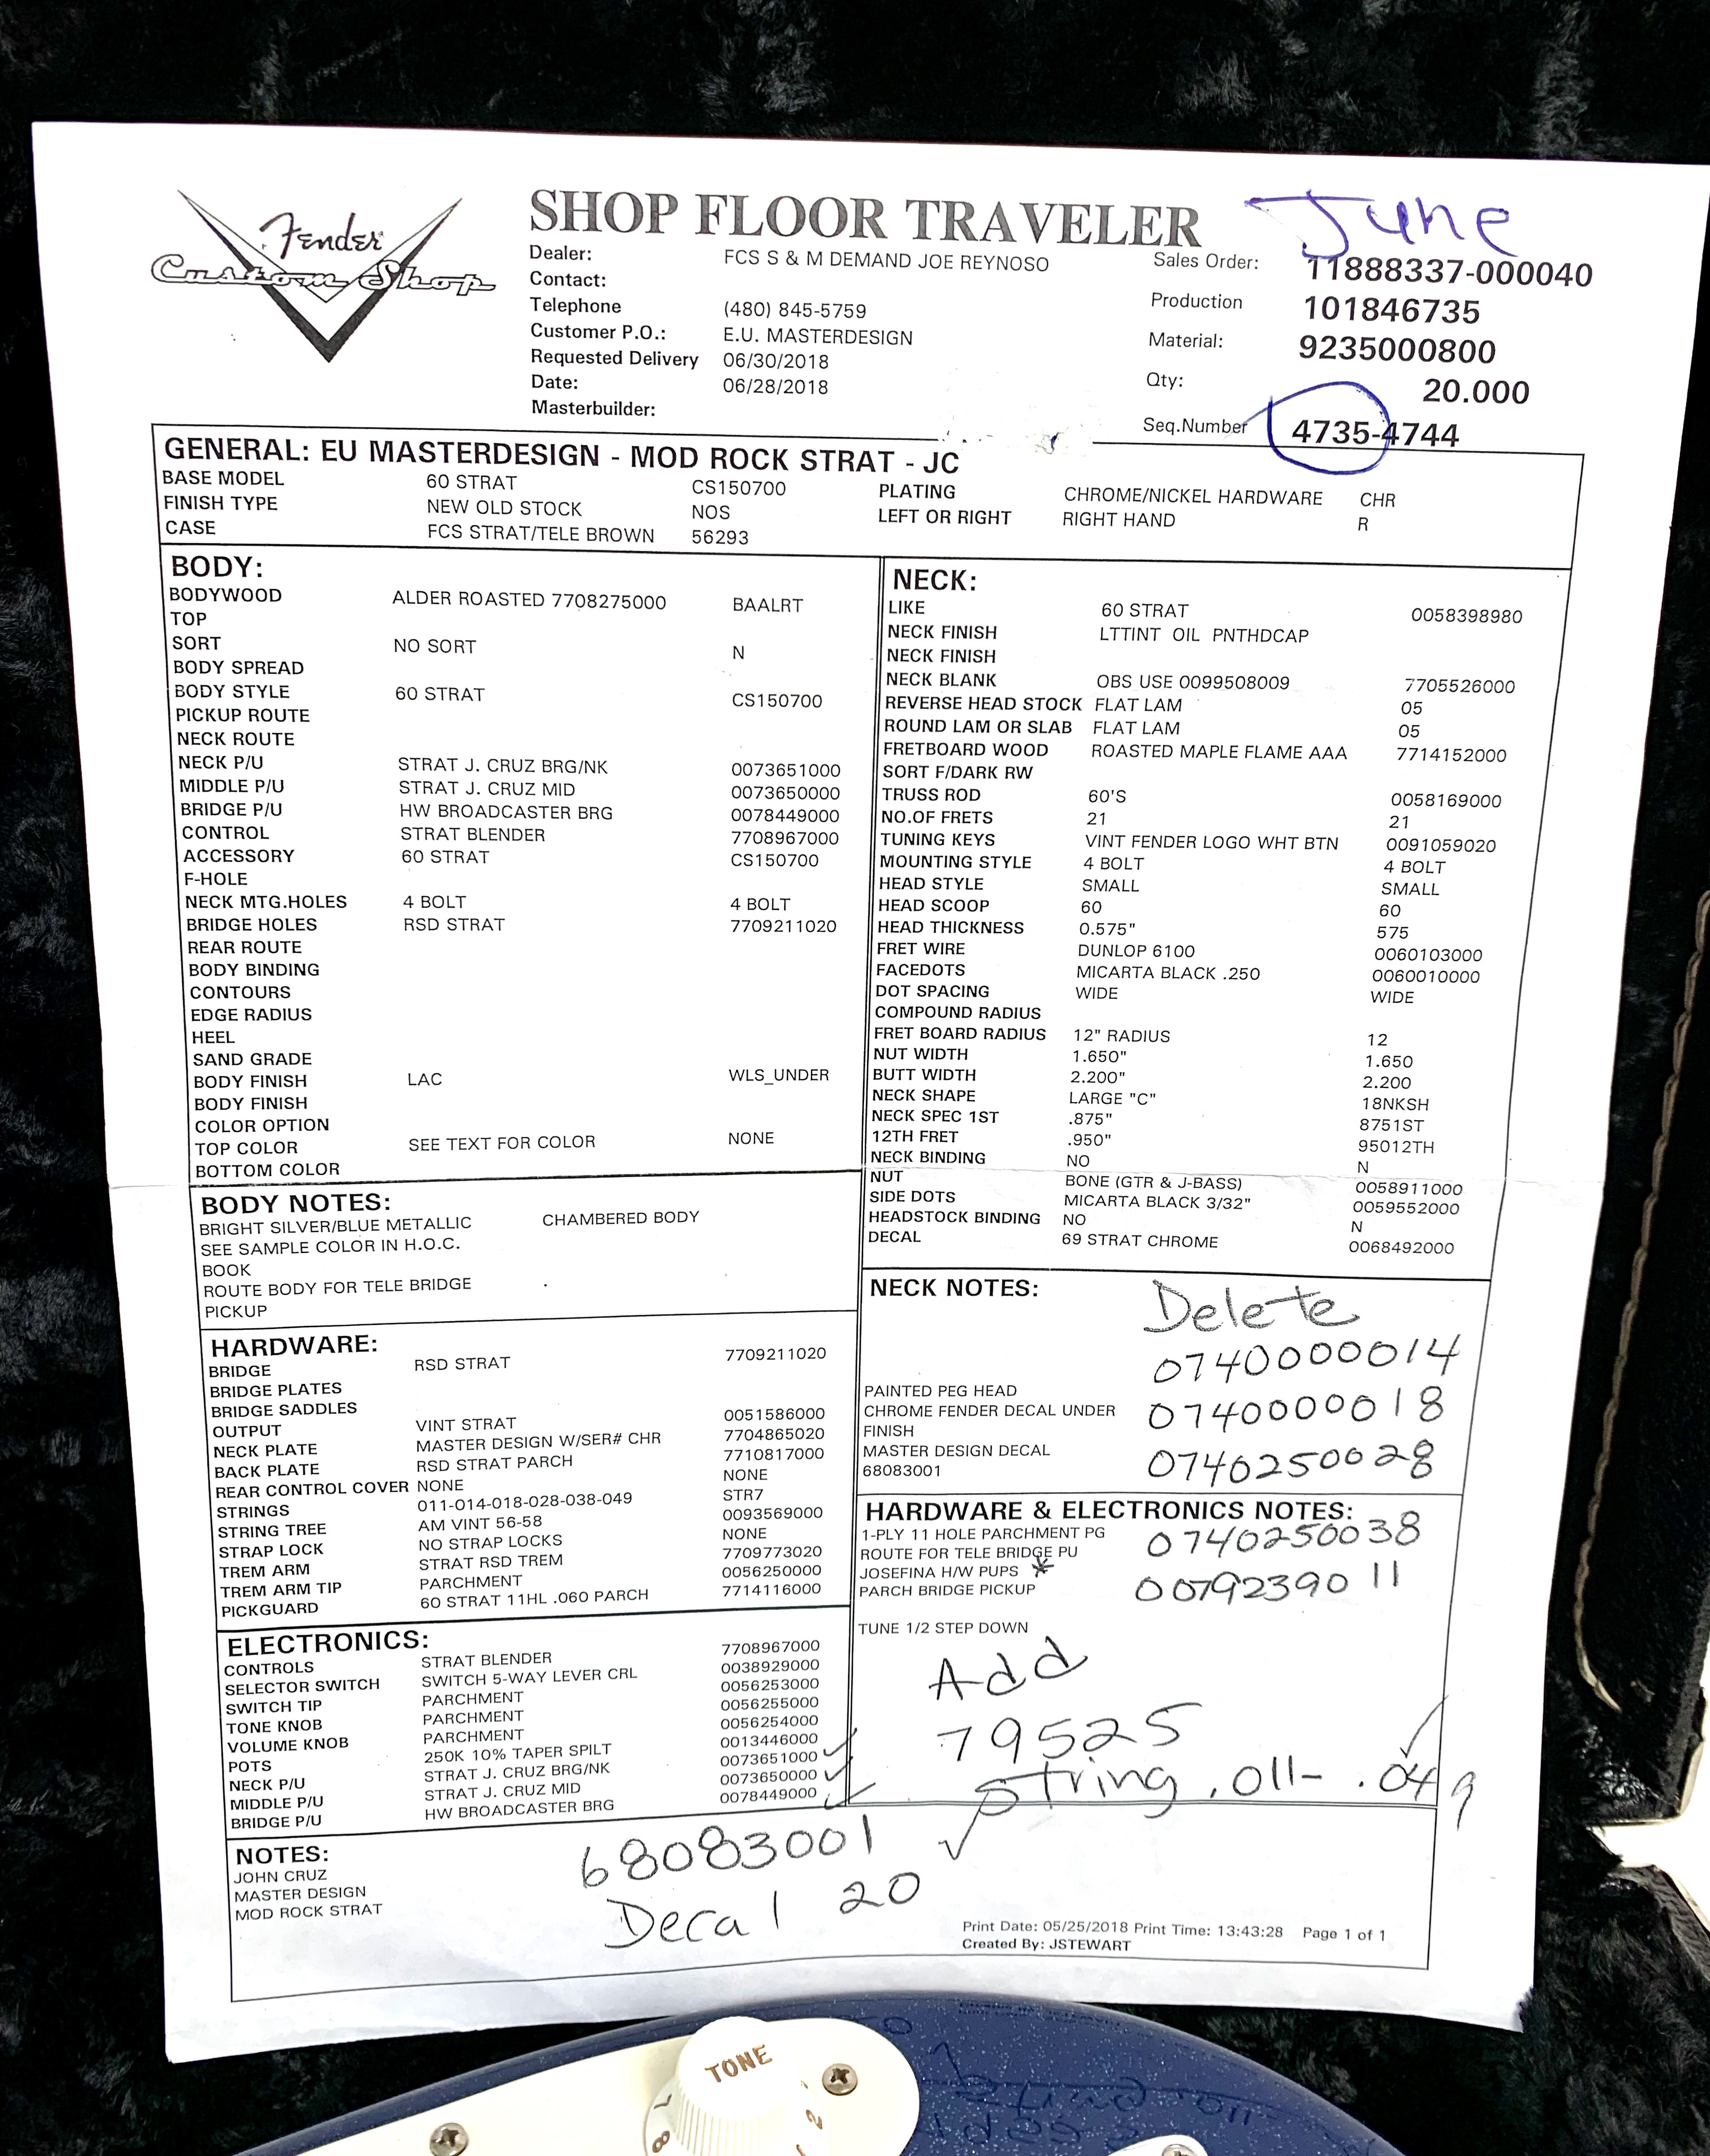 Fender
Custom Shop
SHOP FLOOR TRAVELER
June
Dealer: FCS S & M DEMAND JOE REYNOSO
Contact:
Telephone (480) 845-5759
Customer P.O.: E.U. MASTERDESIGN
Requested Delivery 06/30/2018
Date: 06/28/2018
Masterbuilder:
Sales Order: 11888337-000040
Production 101846735
Material: 9235000800
Qty: 20.000
Seq.Number 4735-4744
GENERAL: EU MASTERDESIGN - MOD ROCK STRAT - JC
BASE MODEL 60 STRAT CS150700 PLATING CHROME/NICKEL HARDWARE CHR
FINISH TYPE NEW OLD STOCK NOS LEFT OR RIGHT RIGHT HAND R
CASE FCS STRAT/TELE BROWN 56293
BODY:
BODYWOOD ALDER ROASTED 7708275000 BAALRT
TOP
SORT NO SORT N
BODY SPREAD
BODY STYLE 60 STRAT CS150700
PICKUP ROUTE
NECK ROUTE
NECK P/U STRAT J. CRUZ BRG/NK 0073651000
MIDDLE P/U STRAT J. CRUZ MID 0073650000
BRIDGE P/U HW BROADCASTER BRG 0078449000
CONTROL STRAT BLENDER 7708967000
ACCESSORY 60 STRAT CS150700
F-HOLE
NECK MTG.HOLES 4 BOLT 4 BOLT
BRIDGE HOLES RSD STRAT 7709211020
REAR ROUTE
BODY BINDING
CONTOURS
EDGE RADIUS
HEEL
SAND GRADE
BODY FINISH LAC WLS_UNDER
BODY FINISH
COLOR OPTION
TOP COLOR SEE TEXT FOR COLOR NONE
BOTTOM COLOR
BODY NOTES:
BRIGHT SILVER/BLUE METALLIC CHAMBERED BODY
SEE SAMPLE COLOR IN H.O.C.
BOOK
ROUTE BODY FOR TELE BRIDGE
PICKUP
HARDWARE:
BRIDGE RSD STRAT 7709211020
BRIDGE PLATES
BRIDGE SADDLES
OUTPUT VINT STRAT 0051586000
NECK PLATE MASTER DESIGN W/SER# CHR 7704865020
BACK PLATE RSD STRAT PARCH 7710817000
REAR CONTROL COVER NONE NONE
STRINGS 011-014-018-028-038-049 STR7
STRING TREE AM VINT 56-58 0093569000
STRAP LOCK NO STRAP LOCKS NONE
TREM ARM STRAT RSD TREM 7709773020
TREM ARM TIP PARCHMENT 0056250000
PICKGUARD 60 STRAT 11HL .060 PARCH 7714116000
ELECTRONICS:
CONTROLS STRAT BLENDER 7708967000
SELECTOR SWITCH SWITCH 5-WAY LEVER CRL 0038929000
SWITCH TIP PARCHMENT 0056253000
TONE KNOB PARCHMENT 0056255000
VOLUME KNOB PARCHMENT 0056254000
POTS 250K 10% TAPER SPILT 0013446000
NECK P/U STRAT J. CRUZ BRG/NK 0073651000
MIDDLE P/U STRAT J. CRUZ MID 0073650000
BRIDGE P/U HW BROADCASTER BRG 0078449000
NECK:
LIKE 60 STRAT 0058398980
NECK FINISH LTTINT OIL PNTHDCAP
NECK FINISH
NECK BLANK OBS USE 0099508009 7705526000
REVERSE HEAD STOCK FLAT LAM 05
ROUND LAM OR SLAB FLAT LAM 05
FRETBOARD WOOD ROASTED MAPLE FLAME AAA 7714152000
SORT F/DARK RW
TRUSS ROD 60'S 0058169000
NO.OF FRETS 21 21
TUNING KEYS VINT FENDER LOGO WHT BTN 0091059020
MOUNTING STYLE 4 BOLT 4 BOLT
HEAD STYLE SMALL SMALL
HEAD SCOOP 60 60
HEAD THICKNESS 0.575" 575
FRET WIRE DUNLOP 6100 0060103000
FACEDOTS MICARTA BLACK .250 0060010000
DOT SPACING WIDE WIDE
COMPOUND RADIUS
FRET BOARD RADIUS 12" RADIUS 12
NUT WIDTH 1.650" 1.650
BUTT WIDTH 2.200" 2.200
NECK SHAPE LARGE "C" 18NKSH
NECK SPEC 1ST .875" 8751ST
12TH FRET .950" 95012TH
NECK BINDING NO N
NUT BONE (GTR & J-BASS) 0058911000
SIDE DOTS MICARTA BLACK 3/32" 0059552000
HEADSTOCK BINDING NO N
DECAL 69 STRAT CHROME 0068492000
NECK NOTES:
Delete
0740000014
PAINTED PEG HEAD
CHROME FENDER DECAL UNDER 0740000018
FINISH
MASTER DESIGN DECAL
68083001 0740250028
HARDWARE & ELECTRONICS NOTES:
1-PLY 11 HOLE PARCHMENT PG 0740250038
ROUTE FOR TELE BRIDGE PU
JOSEFINA H/W PUPS *
PARCH BRIDGE PICKUP 0079239011
TUNE 1/2 STEP DOWN
Add
79525
String .011-.049
NOTES:
JOHN CRUZ
MASTER DESIGN
MOD ROCK STRAT
68083001
Decal 20
Print Date: 05/25/2018 Print Time: 13:43:28 Page 1 of 1
Created By: JSTEWART
TONE
2
7
8